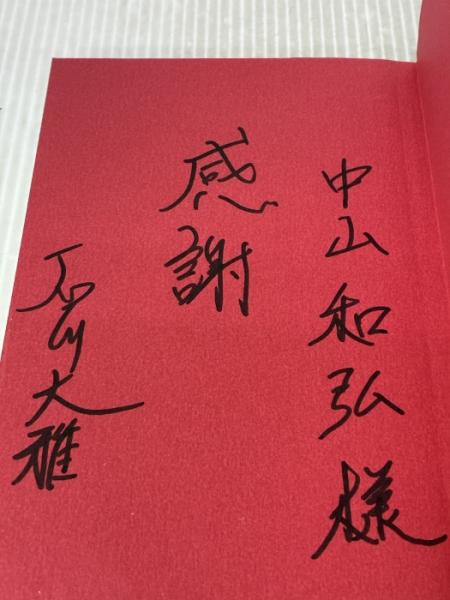 中山和弘様
感謝
石川大雅